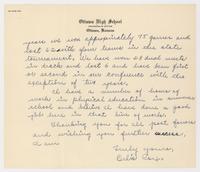 Ottawa High School
Ottawa, Kansas
years we won approximately 75 games and
lost 62 with four teams in the state
tournament. We have won 28 dual meets
in track and lost 6 and have been first
or second in our conference with the
exception of two years.
I have a number of hours of
work in physical education in summer
school and believe I have done a good
job here in that work also.
Thanking you for all past favors
and wishing you further success,
I am
Truly yours,